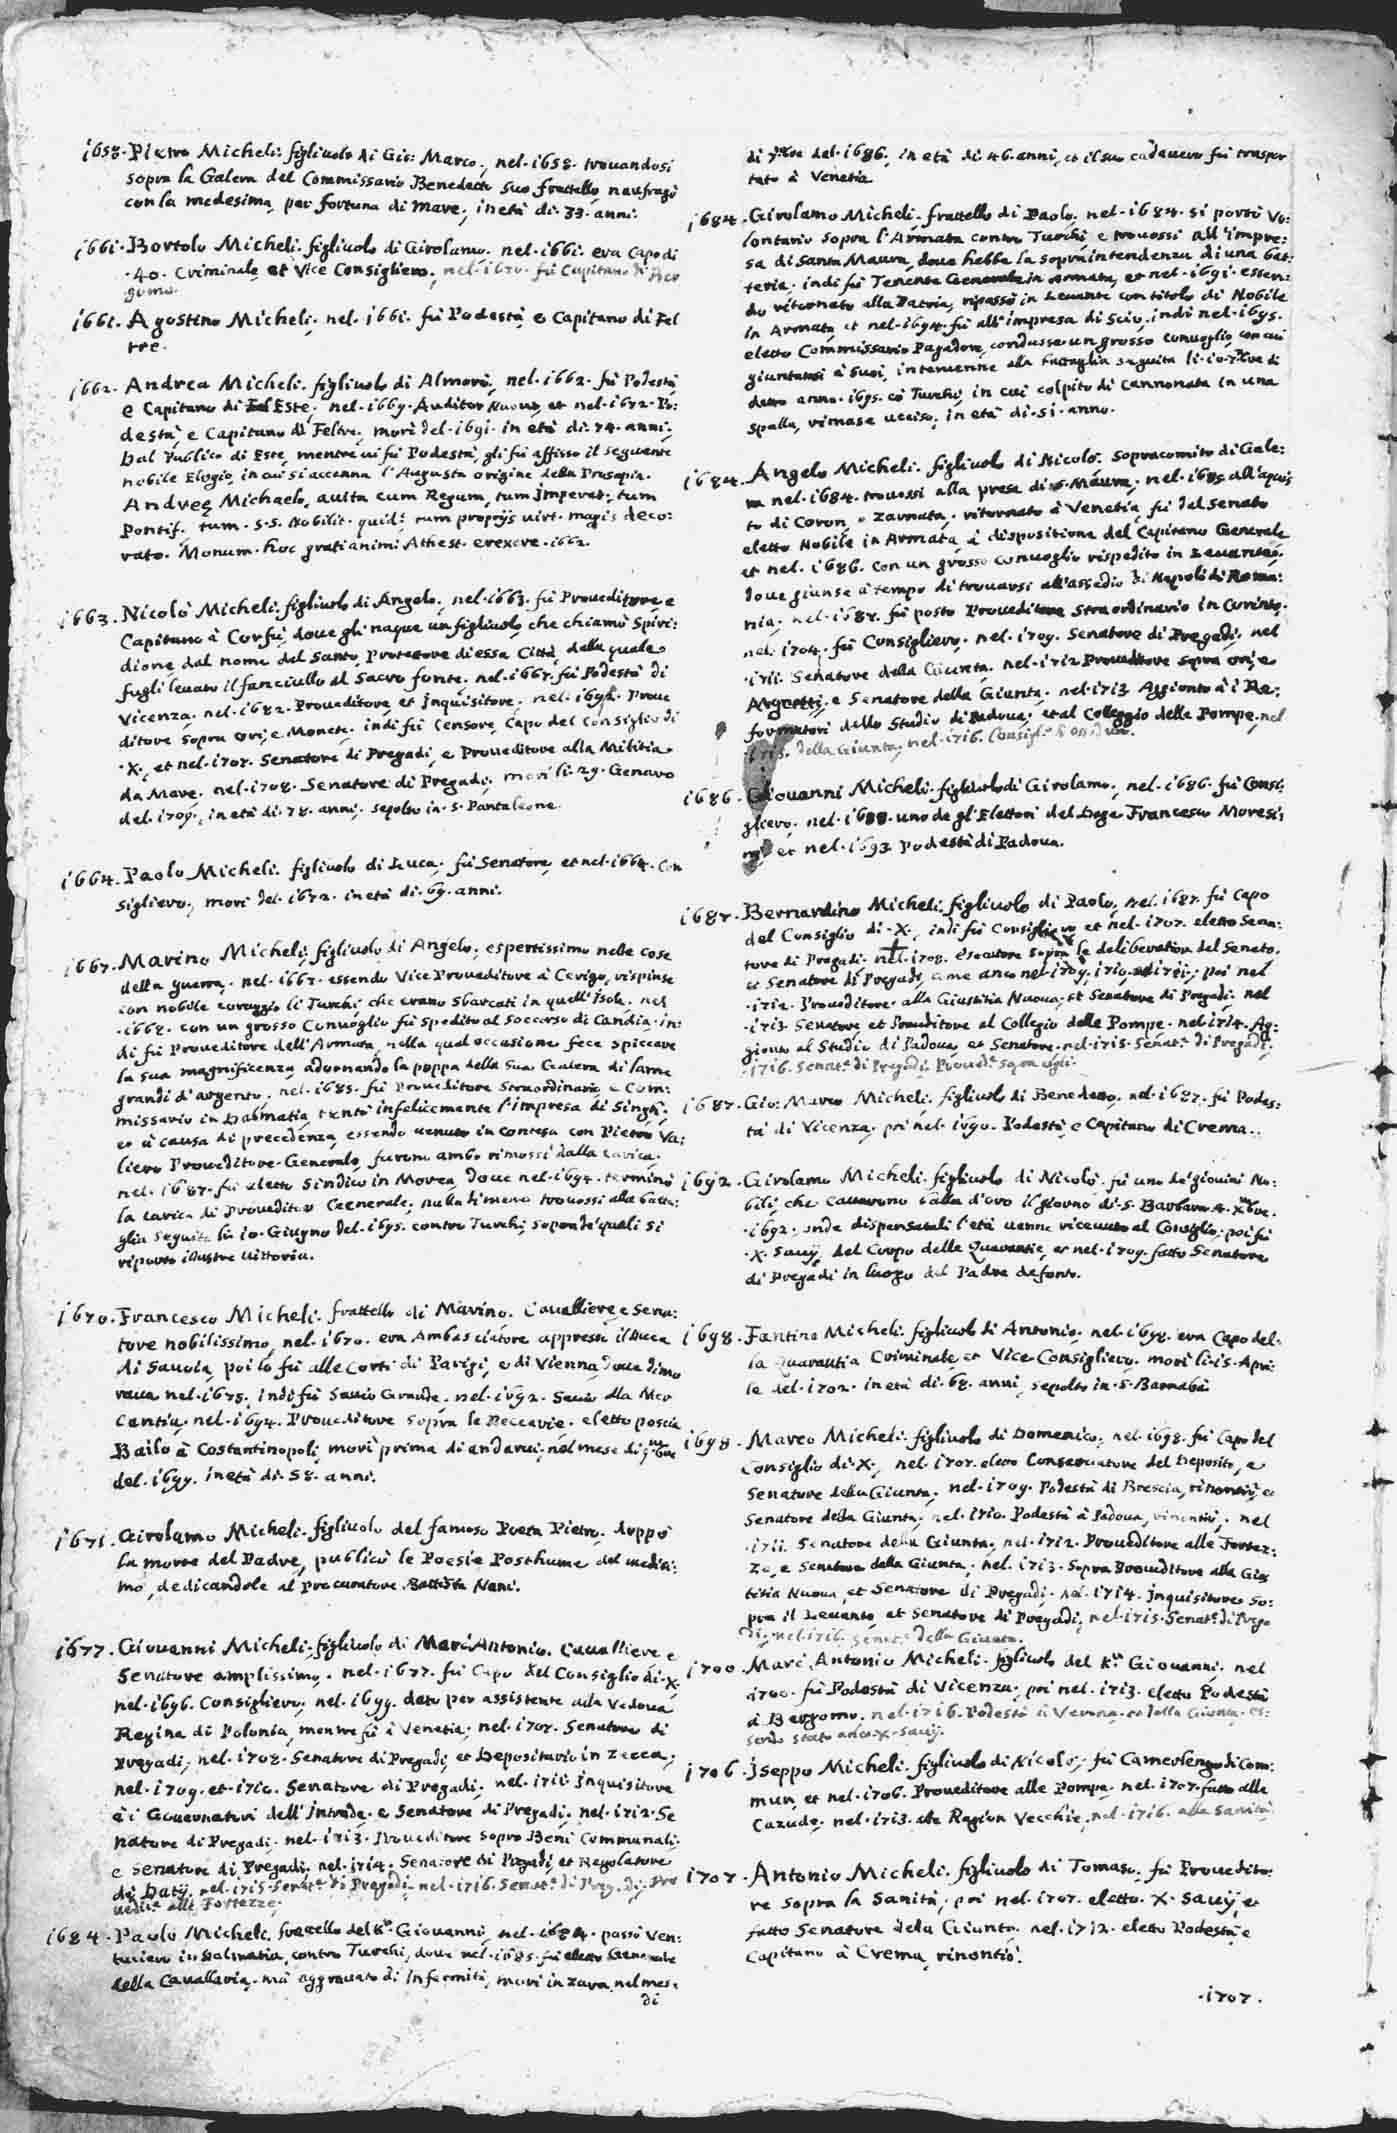 1658. Pietro Micheli. figliuolo di Gio: Marco, nel. 1658. trouandosi
sopra la Galera del Commissario Benedetto suo frattello, naufragò
con la medesima, per fortuna di mare, in età di. 33. anni.
1661. Bortolo Micheli. figliuolo di Girolamo. nel. 1661. era Capo di
.40. Criminale, et Vice Consigliero, nel. 1670. fù Capitano di Ber
gamo.
1661. Agostino Micheli, nel. 1661. fù Podestà, e Capitano di Fel
tre.
1662. Andrea Micheli. figliuolo di Almorò, nel. 1662. fù Podestà
e Capitano di Este. nel. 1669. Auditor Nuouo, et nel. 1672. Po:
destà, e Capitano di Feltre, morì del. 1691. in età di. 74. anni.
Dal Publico di Este, mentre ui fù Podestà, gli fù affisso il seguente
nobile Elogio, in cui si accenna l'Augusta origine della Prosapia.
Andreę Michaelo, auita cum Regum, tum Imperat. tum
Pontif. tum. S. S. Nobilit. quid: tum proprijs uirt. magis deco:
rato. Monum. hoc grati animi Athest. erexere. 1662.
1663. Nicolò Micheli. figliuolo di Angelo, nel. 1663. fù Proueditore e
Capitano à Corfù, doue gli naque un figliuolo, che chiamò Spiri:
dione dal nome del Santo, Protettore di essa Città, dalla quale
fugli leuato il fanciullo al Sacro fonte. nel. 1667. fù Podestà di
Vicenza. nel. 1682. Proueditore, et Inquisitore. nel. 1692. Proue
ditore sopra Ori, e Monete. indi fù Censore, Capo del Consiglio di
.X., et nel. 1707. Senatore di Pregadi, e Proueditore alla Militia
da Mare. nel. 1708. Senatore di Pregadi, morì li. 29. Genaro
del. 1709., in età di. 78. anni, sepolto in. S. Pantaleone.
1664. Paolo Micheli. figliuolo di Luca, fù Senatore, et nel. 1664. Con
sigliero, morì del. 1672. in età di. 69. anni.
1667. Marino Micheli, figliuolo di Angelo, espertissimo nelle cose
della guerra, nel. 1667. essendo Vice Proueditore à Cerigo, rispinse
con nobile coraggio li Turchi, che erano sbarcati in quell'Isola. nel
.1668. con un grosso Conuoglio fù spedito al soccorso di Candia. in:
di fù Proueditore dell'Armata, nella qual occasione fece spiccare
la sua magnificenza, adornando la poppa della Sua Galera di lame
grandi d'argento. nel. 1685. fù Proueditore Straordinario, e Com:
missario in Dalmatia, tentò infelicemente l'impresa di Singh,
et à causa di precedenza, essendo uenuto in contesa con Pietro Va:
liero Proueditore Generale, furono ambo rimossi dalla carica.
nel. 1687. fù eletto Sindico in Morea, doue nel. 1694. terminò
la carica di Proueditor Generale. nulla dimeno trouossi alla batta:
glia seguita li. 10. Giugno del. 1695. contro Turchi, sopra de' quali si
riportò illustre uittoria.
1670. Francesco Micheli. frattello di Marino. Caualliere, e Sena:
tore nobilissimo, nel. 1670. era Ambasciatore appresso il Duca
di Sauoia, poi lo fù alle Corti di Parigi, e di Vienna, doue dimo
raua nel. 1675. indi fù Sauio Grande. nel. 1692. Sauio alla Mer
cantia. nel. 1694. Proueditore sopra le Beccarie. eletto poscia
Bailo à Costantinopoli, morì prima di andarui, nel mese di 9mbre
del. 1699. in età di. 58. anni.
1671. Girolamo Micheli. figliuolo del famoso Poeta Pietro, doppo
la morte del Padre, publicò le Poesie Posthume del medesi:
mo, dedicandole al Procuratore Battista Nani.
1677. Giouanni Micheli. figliuolo di Marc'Antonio. Caualliere e
Senatore amplissimo. nel. 1677. fù Capo del Consiglio di. X.
nel. 1696. Consigliero, nel. 1699. dato per assistente alla Vedoua
Regina di Polonia, mentre fù à Venetia. nel. 1707. Senatore di
Pregadi, nel. 1708. Senatore di Pregadi, et Depositario in Zecca,
nel. 1709. et. 1710. Senatore di Pregadi. nel. 1711. Inquisitore
à i Gouernatori dell'Intrade, e Senatore di Pregadi. nel. 1712. Se
natore di Pregadi. nel. 1713. Proueditore sopra Beni Communali,
e Senatore di Pregadi. nel. 1714. Senatore di Pregadi, et Regolatore
di Datij. nel. 1715. Senat.e di Pregadi, nel. 1716. Senat.e di Preg.di, Pro
uedit.e alle Fortezze.
1684. Paolo Micheli, frattello del K.r Giouanni, nel. 1684. passò Ven:
turiero in Dalmatia, contro Turchi, doue nel. 1685. fù eletto Generale
della Caualleria, mà aggrauato di Infermità, morì in Zara, nel mese
di
di 7mbre del. 1686. in età di 46. anni, et il suo cadauero fù traspor
tato à Venetia.
1684. Girolamo Micheli. frattello di Paolo, nel. 1684. si portò Vo:
lontario sopra l'Armata contro Turchi, e trouossi all'impre:
sa di Santa Maura, doue hebbe la sopraintendenza di una bat:
teria. indi fù Tenente Generale in Armata, et nel. 1691. essen:
do ritornato alla Patria, ripassò in Leuante con titolo di Nobile
in Armata, et nel. 1694. fù all'impresa di Scio, indi nel. 1695.
eletto Commissario Pagadore, condusse un grosso conuoglio, con cui
giuntatosi à Suoi, interuenne alla battaglia seguita li. 10. 7mbre di
detto anno. 1695. co' Turchi, in cui colpito di cannonata in una
spalla, rimase ucciso, in età di. 51. anno.
1684. Angelo Micheli. figliuolo di Nicolò. Sopracomito di Gale:
ra nel. 1684. trouossi alla presa di S. Maura. nel. 1685. all'aquis
to di Coron, e Zarnata. ritornato à Venetia, fù dal Senato
eletto Nobile in Armata, à dispositione del Capitano Generale
et nel. 1686. con un grosso conuoglio rispedito in Leuante,
doue giunse à tempo di trouarsi all'assedio di Napoli di Roma:
nia. nel. 1687. fù posto Proueditore Straordinario in Corinto.
nel. 1704. fù Consigliero. nel. 1709. Senatore di Pregadi. nel
.1711. Senatore della Giunta. nel. 1712. Proueditore sopra ori, e
Argenti, e Senatore della Giunta. nel. 1713. Aggionto à i Re:
formatori dello Studio di Padoua, et al Colleggio delle Pompe, nel
.1715. della Giunta, nel. 1716.
1686. Giouanni Micheli. figliuolo di Girolamo, nel. 1686. fù Consi:
gliero. nel. 1688. uno de gl'Elettori del Doge Francesco Moresi:
ni, et nel. 1693. Podestà di Padoua.
1687. Bernardino Micheli. figliuolo di Paolo, nel. 1687. fù Capo
del Consiglio di. X., indi fù Consigliero et nel. 1707. eletto Sena:
tore di Pregadi. nel. 1708. Esecutore sopra le deliberation del Senato,
et Senatore di Pregadi, come anco nel. 1709. 1710. et 1711; poi nel
.1712. Proueditore alla Giustitia Nuoua, et Senatore di Pregadi. nel
.1713. Senatore et Proueditore al Collegio delle Pompe. nel. 1714. Ag:
gionto al Studio di Padoua, et Senatore. nel. 1715. Senat.e di Pregadi.
.1716. Senat.e di Pregadi, Proued.e sopra ogli.
1687. Gio: Marco Micheli. figliuolo di Benedetto, nel. 1687. fù Podes:
tà di Vicenza. poi nel. 1690. Podestà, e Capitano di Crema.
1692. Girolamo Micheli. figliuolo di Nicolò, fù uno de' giouini No:
bili, che cauarono balla d'oro il giorno di. S. Barbara 4. Xmbre.
.1692. onde dispensatali l'età uenne riceuuto al Consiglio. poi fù
.X. Sauij, del Corpo delle Quarantie, et nel. 1709. fatto Senatore
di Pregadi in luogo del Padre defonto.
1698. Fantino Micheli. figliuolo di Antonio, nel. 1698. era Capo del.
la Quarantia Criminale, et Vice Consigliero. morì li. 15. Apri:
le del. 1702. in età di. 68. anni, sepolto in. S. Barnaba.
1698. Marco Micheli. figliuolo di Domenico, nel. 1698. fù Capo del
Consiglio di. X., nel. 1707. eletto Conseruatore del Deposito, e
Senatore della Giunta. nel. 1709. Podestà di Brescia, rinontiò, e
Senatore della Giunta. nel. 1710. Podestà à Padoua, rinontiò, nel
.1711. Senatore della Giunta. nel. 1712. Proueditore alle Fortez:
ze, e Senatore della Giunta. nel. 1713. Sopra Proueditore alla Gius
titia Nuoua, et Senatore di Pregadi. nel. 1714. Inquisitore so:
pra il Leuante, et Senatore di Pregadi, nel. 1715. Senat.e di Prega
di, nel. 1716. Senat.e della Giunta.
1700. Marc'Antonio Micheli. figliuolo del K.r Giouanni. nel
.1700. fù Podestà di Vicenza, poi nel. 1713. eletto Podestà
à Bergomo. nel. 1716. Podestà à Verona, et della Giunta, es:
sendo stato anco. X. Sauij.
1706. Iseppo Micheli. figliuolo di Nicolò, fù Camerlengo di Com:
mun, et nel. 1706. Proueditore alle Pompe. nel. 1707. fatto alle
Cazude. nel. 1713. alle Ragion Vecchie, nel. 1716. alla Sanità.
1707. Antonio Micheli. figliuolo di Tomaso, fù Prouedito:
re sopra la Sanità, poi nel. 1707. eletto. X. Sauij, e
fatto Senatore della Giunta. nel. 1712. eletto Podestà e
Capitano à Crema, rinontiò.
.1707.